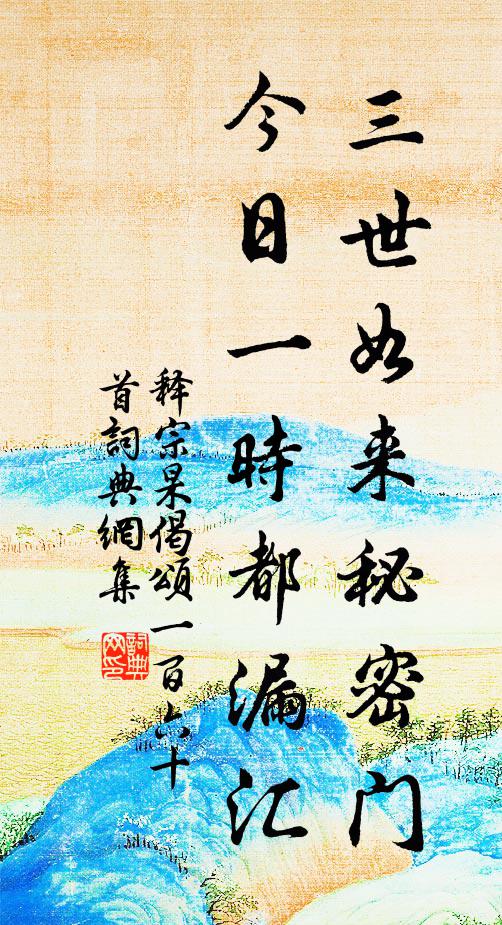 三世如来秘密门
今日一時都漏江
释宗杲偈頌一百六十
首詞典網集
詞典
网印